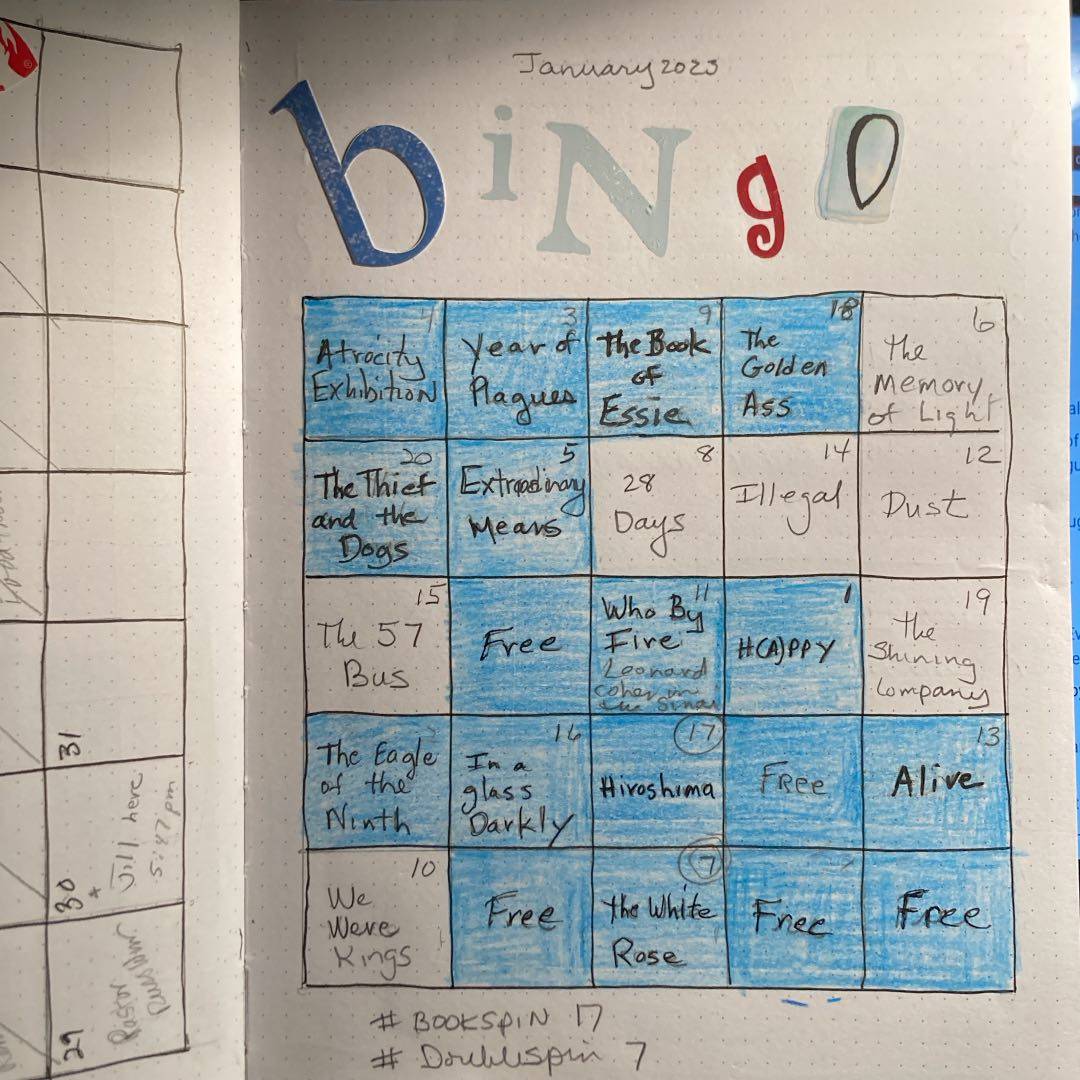 January 2023
biNgO
4
Atrocity
Exhibition
3
Year of
Plagues
9
The Book
of
Essie
18
The
Golden
Ass
6
The
Memory
of Light
20
The Thief
and the
Dogs
5
Extraordinary
Means
8
28
Days
14
Illegal
12
Dust
15
The 57
Bus
Free
11
Who By
Fire
Leonard
Cohen in
the Sinai
1
H(A)PPY
19
The
Shining
Company
The Eagle
of the
Ninth
16
In a
glass
Darkly
17
Hiroshima
Free
13
Alive
10
We
Were
Kings
Free
7
The White
Rose
Free
Free
# BOOKSPIN 17
# DoubleSpin 7
31
30
*
Jill here
5:47 pm
29